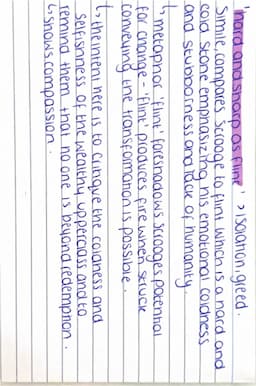 'hard and sharp as flint' > isolation, greed.
Simile, compares Scrooge to flint which is a hard and
cold stone emphasizing his emotional coldness
and stubborness and lack of humanity.
↳ metaphor 'flint' foreshadows Scrooges potential
for change - flint produces fire when struck
conveying the transformation is possible.
↳ the intent here is to critique the coldness and
selfishness of the wealthy upperclass and to
remind them that no one is beyond redemption.
↳ shows compassion.